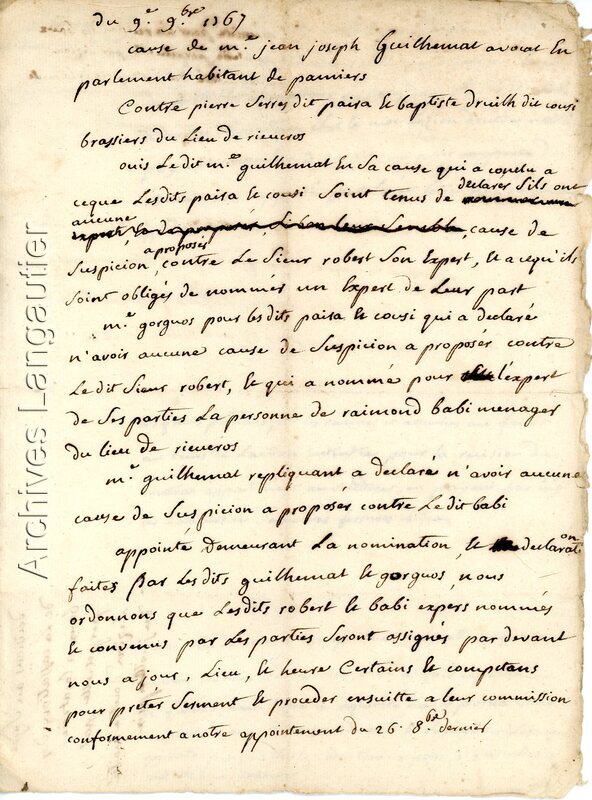 du 9e 9bre 1767
cause de me jean joseph Guilhemat avocat En
parlement habitant de pamiers
Contre pierre Serres dit paisa et baptiste druilh dit cousi
brassiers du Lieu de rieucros
ouis Ledit me guilhemat En sa cause qui a conclu a
ceque Lesdits paisa et cousi Soint tenus de declarer Sils ont
aucune cause de
Suspicion, a proposer contre Le Sieur robert Son Expert, Et a cequ'ils
Soint obligés de nommés un Expert de Leur part
me gorguos pour lesdits paisa et cousi qui a declaré
n'avoir aucune cause de Suspicion a proposér contre
Ledit Sieur robert, Et qui a nommé pour l'expert
de Ses parties La personne de raimond babi menager
du lieu de rieucros
me guilhemat repliquant a declaré n'avoir aucune
cause de Suspicion a proposér contre Ledit babi
appointé demeurant La nomination, et declaration
faites par Lesdits guilhemat et gorguos, nous
ordonnons que Lesdits robert et babi expers nommés
Et convenus par Les parties Seront assignés pardevant
nous a jour, Lieu, Et heure Certains Et competans
pour prétér Serment Et proceder ensuitte a leur commission
conformement a notre appointement du 26. 8bre dernier
Archives Langautier